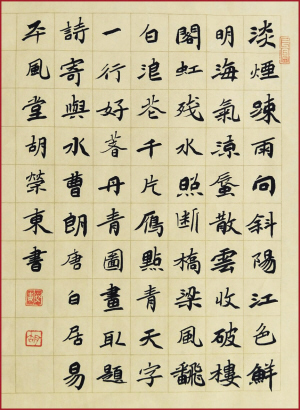 淡煙踈雨向斜陽江色鮮
明海氣涼蜃散雲收破樓
閣虹残水照断橋梁風飜
白浪花千片鴈點青天字
一行好著丹青圖畫取題
詩寄與水曹郎唐白居易
風堂胡榮東書